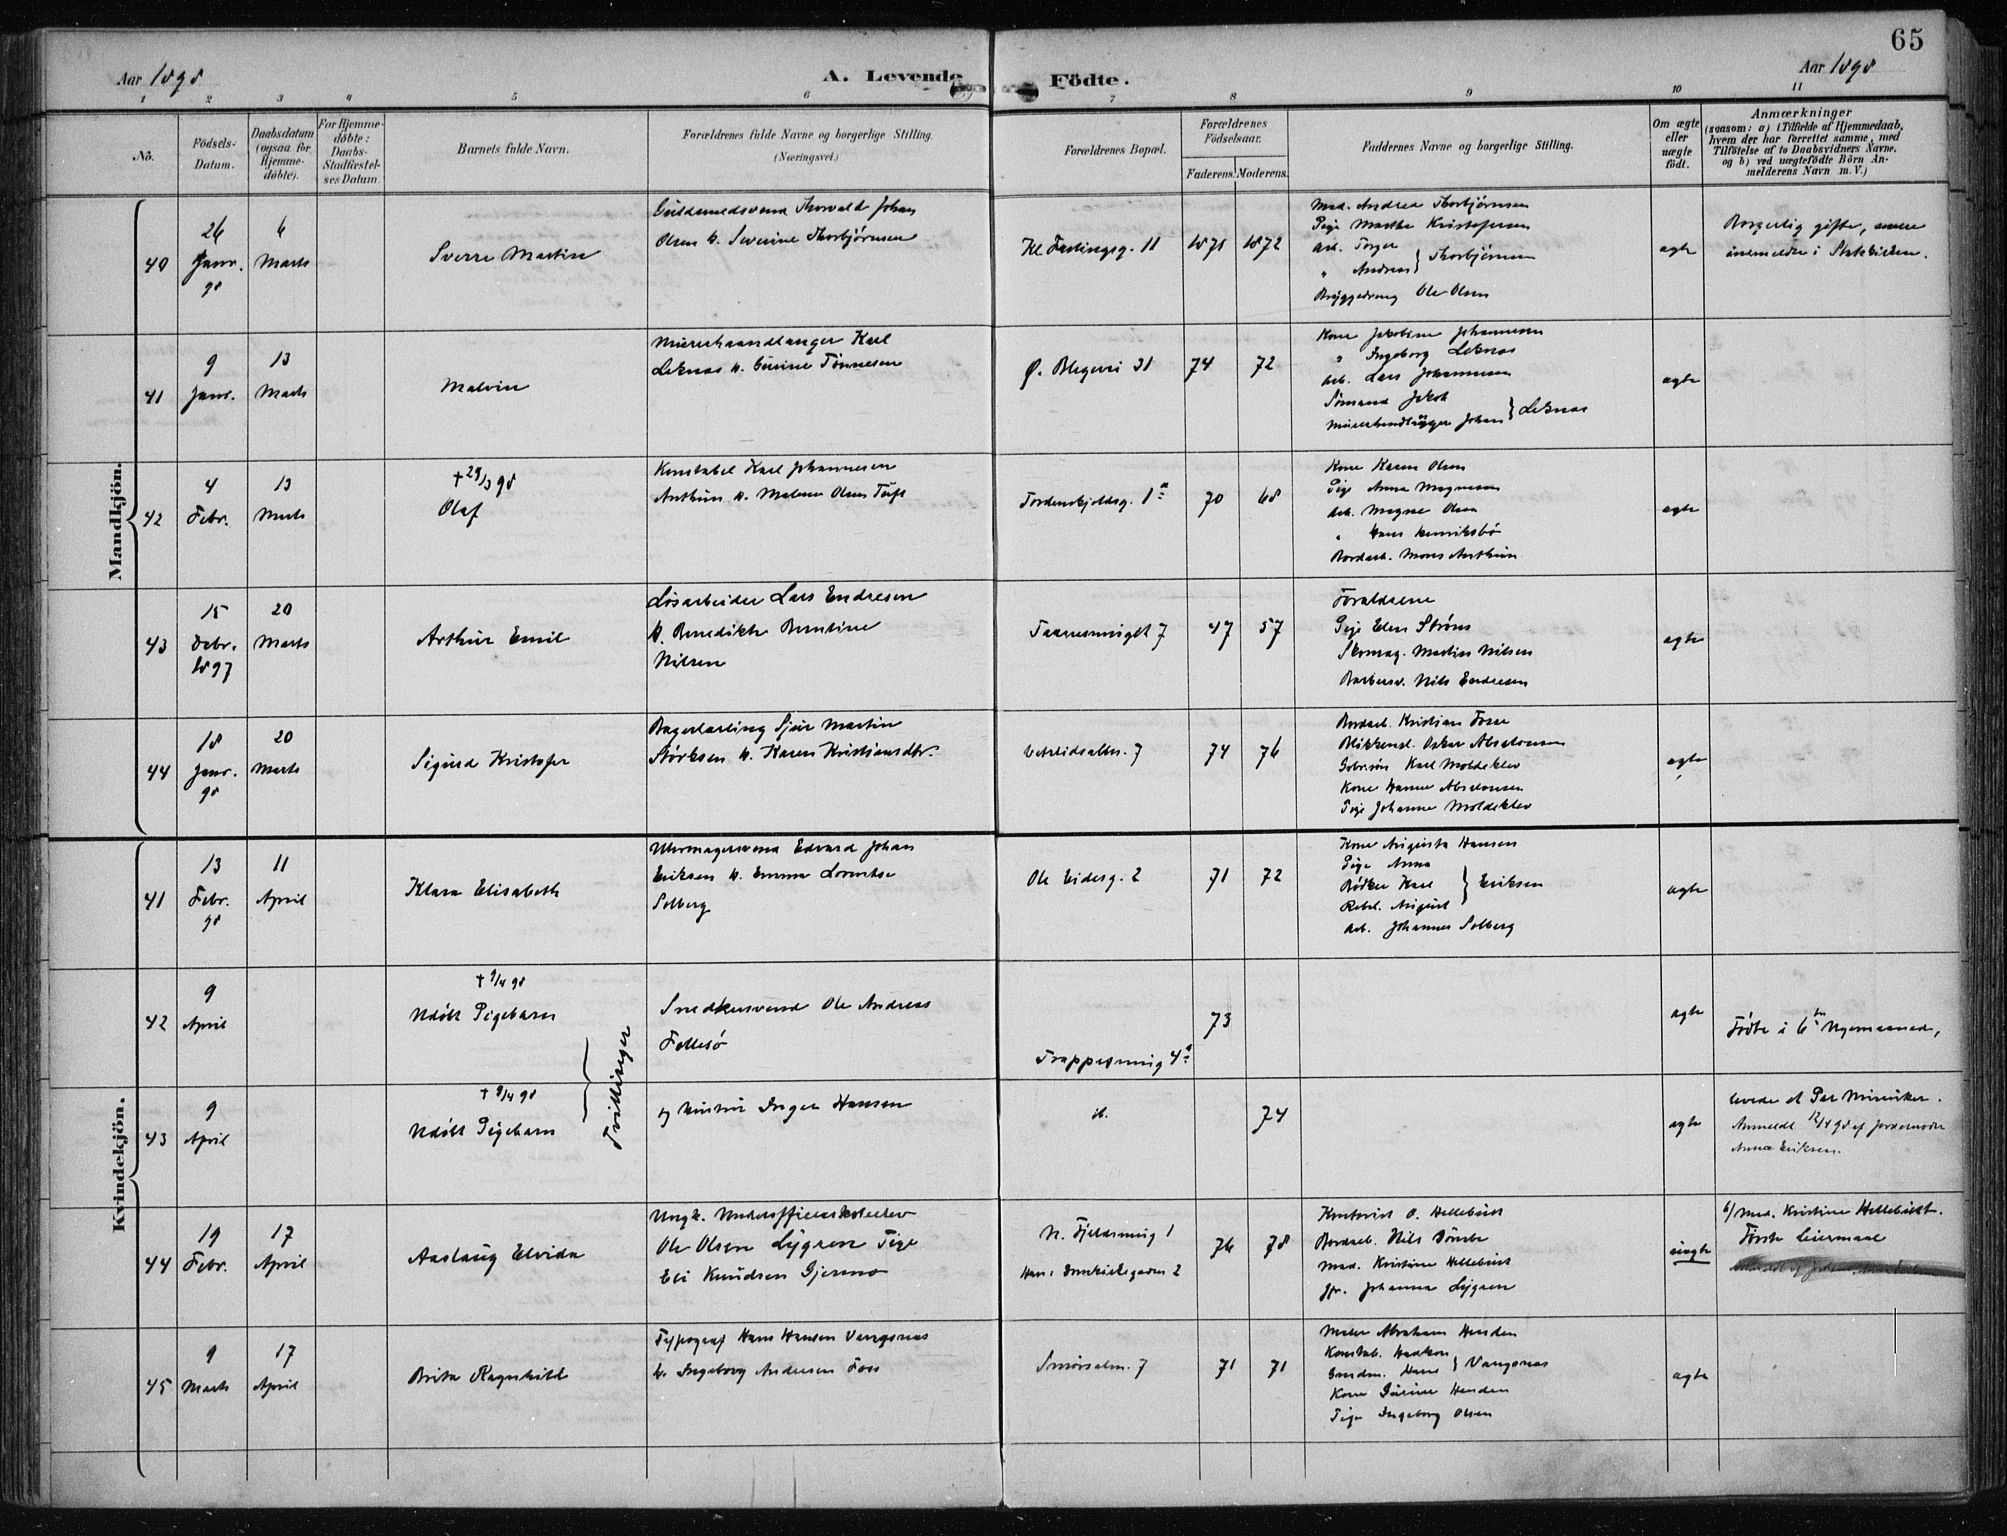 65
Aar 1898
A. Levende Födte.
Aar 1898
1 2 3 4 5 6 7 8 9 10 11
No.
Födsels-Datum.
Daabsdatum (ogsaa for Hjemmedöbte).
For Hjemmedöbte: Daabs-Stadfæstelses Datum.
Barnets fulde Navn.
Forældrenes fulde Navne og borgerlige Stilling. (Næringsvei.)
Forældrenes Bopæl.
Forældrenes Födselsaar.
Faderens. Moderens.
Faddernes Navne og borgerlige Stilling.
Om ægte eller uægte födt.
Anmærkninger (saasom: a) i Tilfælde af Hjemmedaab, hvem der har forrettet samme, med Tilföielse af to Daabsvidners Navne, og b) ved uægtefödte Börn Anmelderens Navn m. V.)
Mandkjön.
40
26 Janr. 98
6 Marts
Sverre Martin
Guldsmedsvend Thorvald Johan
Olsen h. Severine Thorbjørnsen
Kl. Fastingsg. 11
1871 1872
Mad. Andrea Thorbjørnsen
Pige Marthe Kristofersen
Arb. Torger
" Andreas } Thorbjørnsen
Bryggedreng Ole Olsen
ægte
Borgerlig gifte, senere
indmeldte i Statskirken.
41
9 Janr.
13 Marts
Malvin
Murerhaandlanger Karl
Leknes h. Gurine Tønnesen
Ø. Blegevei 31
74 72
Kone Jakobine Johannesen
" Ingeborg Leknes
Arb. Lars Johannesen
Sømand Jakob
Murerhandlanger Johan } Leknes
ægte
42
4 Febr.
13 Marts
+ 29/3 98
Olaf
Konstabel Karl Johannesen
Anthun h. Malene Olsen Tuft
Tordenskjoldsg. 1 a
70 68
Kone Karen Olsen
Pige Anna Magnesen
Arb. Magne Olsen
" Hans Henriksbø
Bordarb. Mons Anthun
ægte
43
15 Febr. 1897
20 Marts
Arthur Emil
Løsarbeider Lars Endresen
h. Benedikte Berntine
Nilsen
7
47 57
Forældrene
Pige Elen Strøm
Skomag. Martin Nilsen
Barbersv. Nils Endresen
ægte
44
18 Janr. 98
20 Marts
Sigurd Kristofer
Bagerlærling Sjur Martin
Størksen h. Karen Kristiansdtr.
7
74 76
Bordarb. Kristian Fosse
Blikkensl. Oskar Absalonsen
Karl Moldeklev
Kone Hanne Absalonsen
Pige Johanne Moldeklev
ægte
Kvindekjön.
41
13 Febr. 98
11 April
Klara Elisabeth
Uhrmagersvend Edvard Johan
Eriksen h. Emma Lorentze
Solberg
Ole Eidesg. 2
71 72
Kone Augusta Hansen
Pige Anna
Bødker Karl
August } Eriksen
Arb. Johannes Solberg
ægte
42
9 April
+ 9/4 98
Udøbt Pigebarn
Tvillinger
Snedkersvend Ole Andreas
Follesø
Trappesmug 4 a
73
ægte
Fødte i 6te Nyemaaned,
43
9 April
+ 9/4 98
Udøbt Pigebarn
og hustru Inger Hansen
it.
74
ægte
levede et Par Minutter.
Anmeldt 12/4 98 af Jordemoder
Anna Eriksen.
44
19 Febr.
17 April
Aaslaug Elvida
Ungk. Underofficerskoleelev
Ole Olsen Lygren Pige
Eli Knudsen Gjermo
N. Fjeldsmug 1
2
76 78
Kontorist O. Hellebust
Bordarb. Nils Tømte
Mad. Kristine Hellebust
Jfr. Johanna Lygren
uægte
b/ Mad. Kristine Hellebust.
Første Leiermaal
45
9 Marts
17 April
Brita Ragnhild
Typograf Hans Hansen Vangsnes
h. Ingeborg Andersen Foss
Smørsalm. 7
71 71
Maler Abraham Henden
Konstab. Haakon
Hans } Vangsnes
Kone Gurine Henden
Pige Ingeborg Olsen
ægte